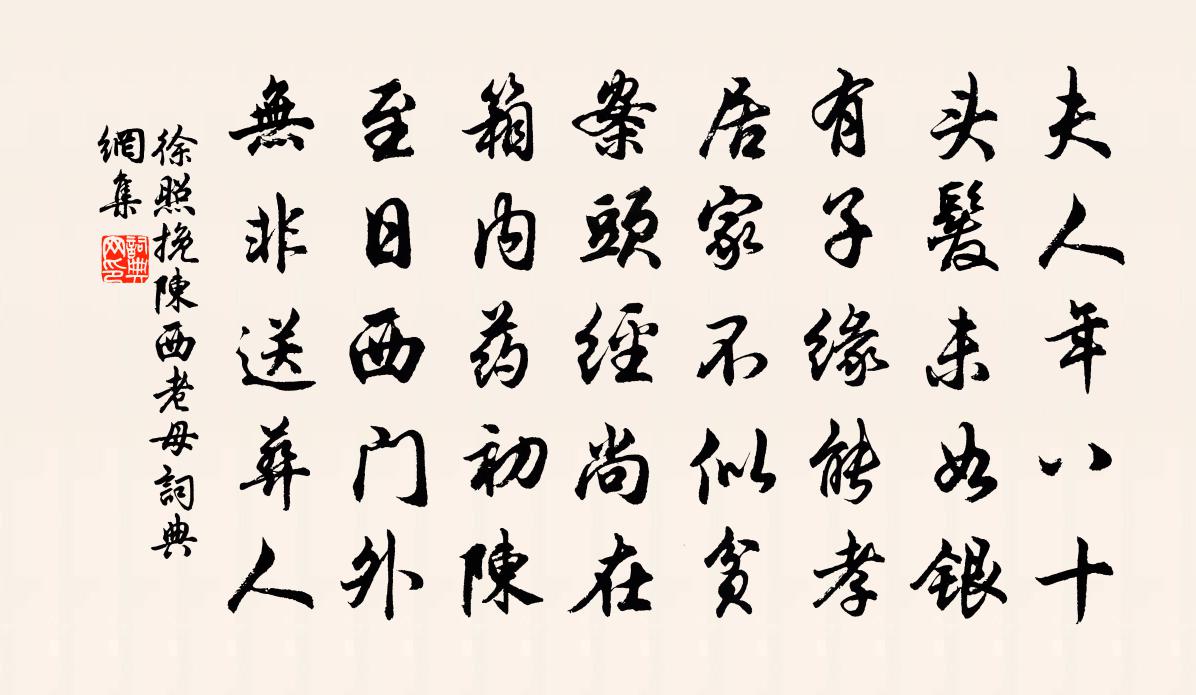 夫人年八十
头髮未如銀
有子缘能孝
居家不似貧
案頭經尚在
箱内药初陳
至日西门外
無非送葬人
徐照挽陳西老母詞典
網集
詞典
网印